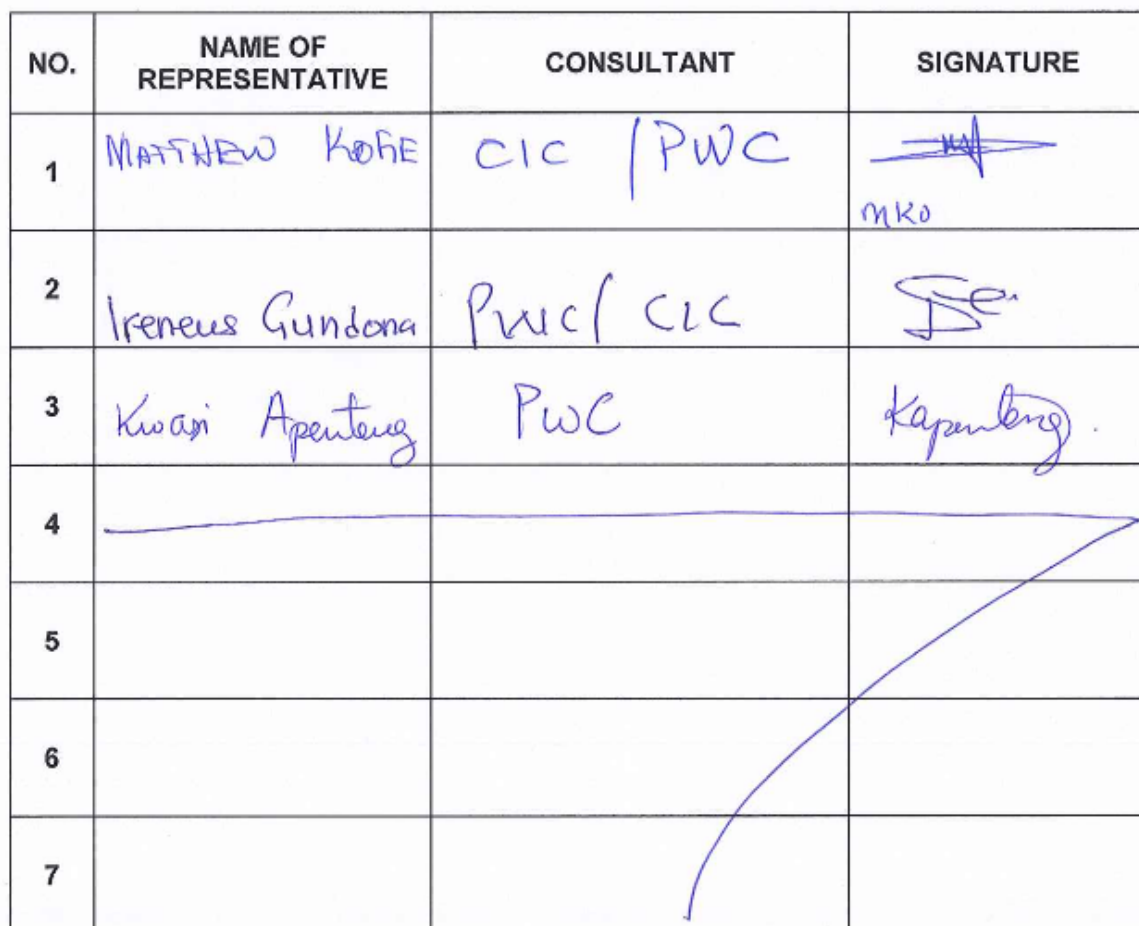 NO. NAME OF REPRESENTATIVE CONSULTANT SIGNATURE
1 MATTHEW CIC / PWC
MKO
2 Ireneus Gundona PWC / CIC
3 Kwasi Apenteng PWC Kapenteng.
4
5
6
7